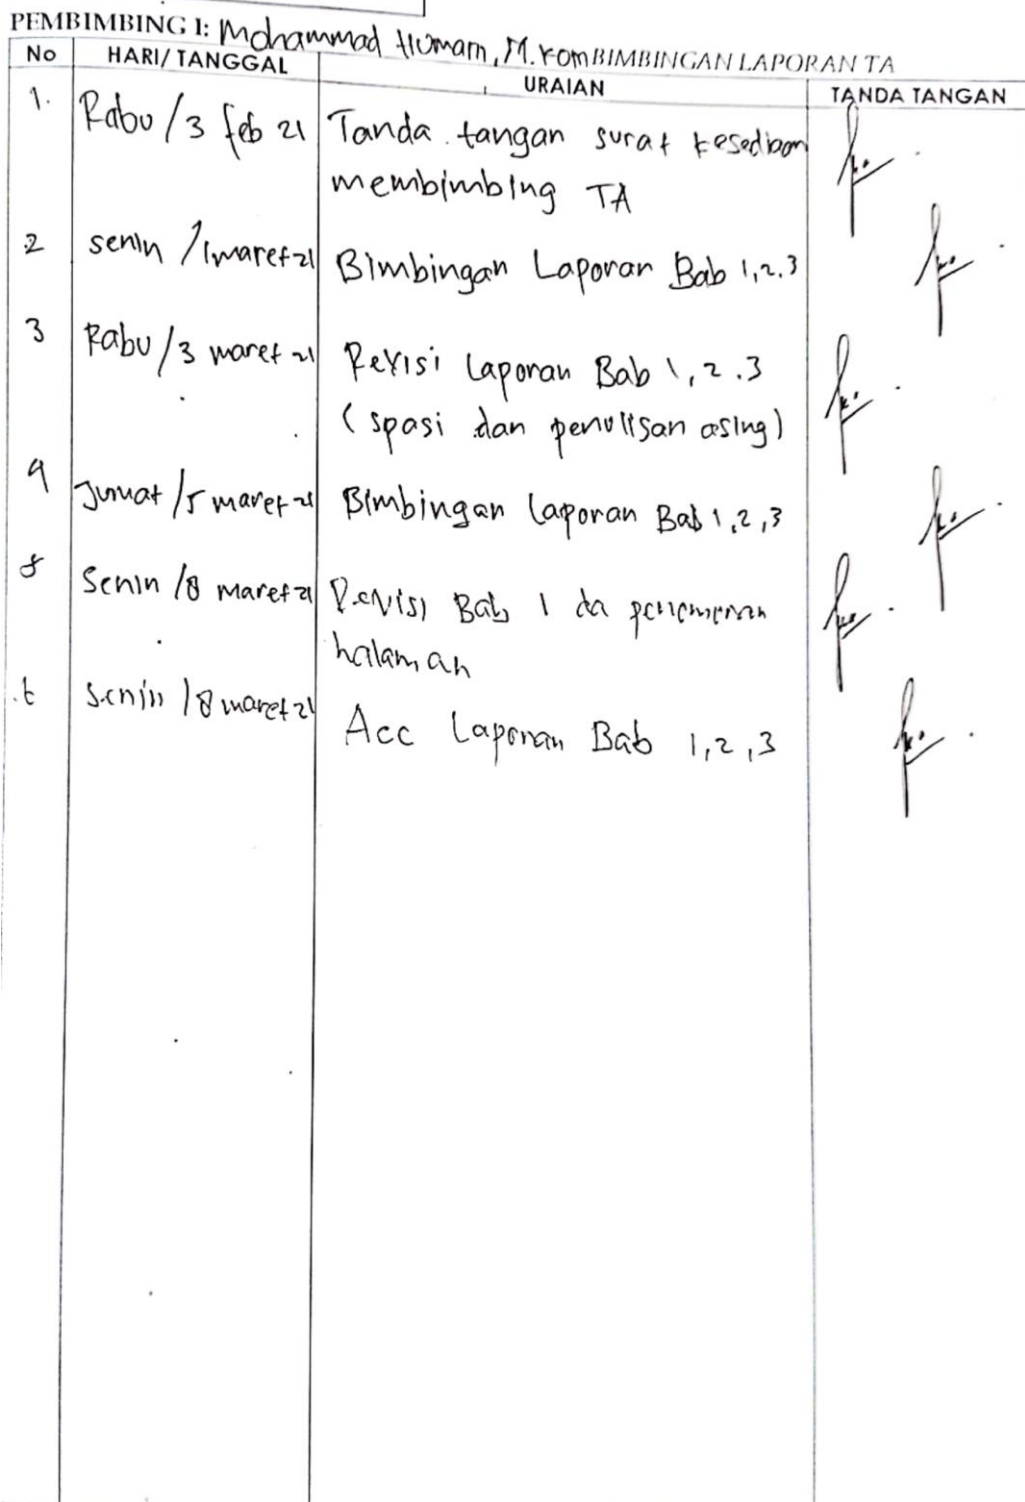 PEMBIMBING I: Mohammad Humam, M.Kom BIMBINGAN LAPORAN TA
No HARI/ TANGGAL URAIAN TANDA TANGAN
1. Rabu / 3 feb 21 Tanda tangan surat kesediaan
membimbing TA
2 senin / 1 maret 21 Bimbingan Laporan Bab 1,2.3
3 Rabu / 3 maret 21 Revisi Laporan Bab 1,2.3
(spasi dan penulisan asing)
4 Jumat / 5 maret 21 Bimbingan laporan Bab 1,2,3
5 Senin / 8 Maret 21 Revisi Bab 1 da penomeran
halaman
6 Senin / 8 maret 21 Acc Laporan Bab 1,2,3